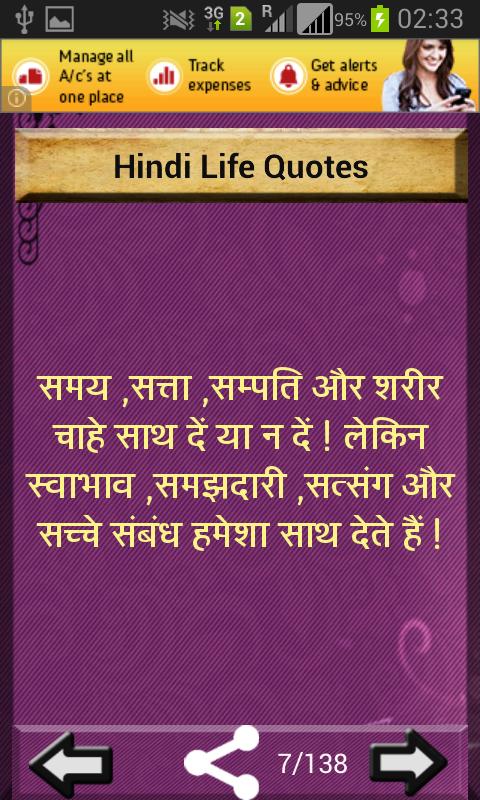 3G 2 R 95% 02:33
Manage all
A/c's at
one place
Track
expenses
Get alerts
& advice
Hindi Life Quotes
समय ,सत्ता ,सम्पति और शरीर
चाहे साथ दें या न दें ! लेकिन
स्वाभाव ,समझदारी ,सत्संग और
सच्चे संबंध हमेशा साथ देते हैं !
7/138